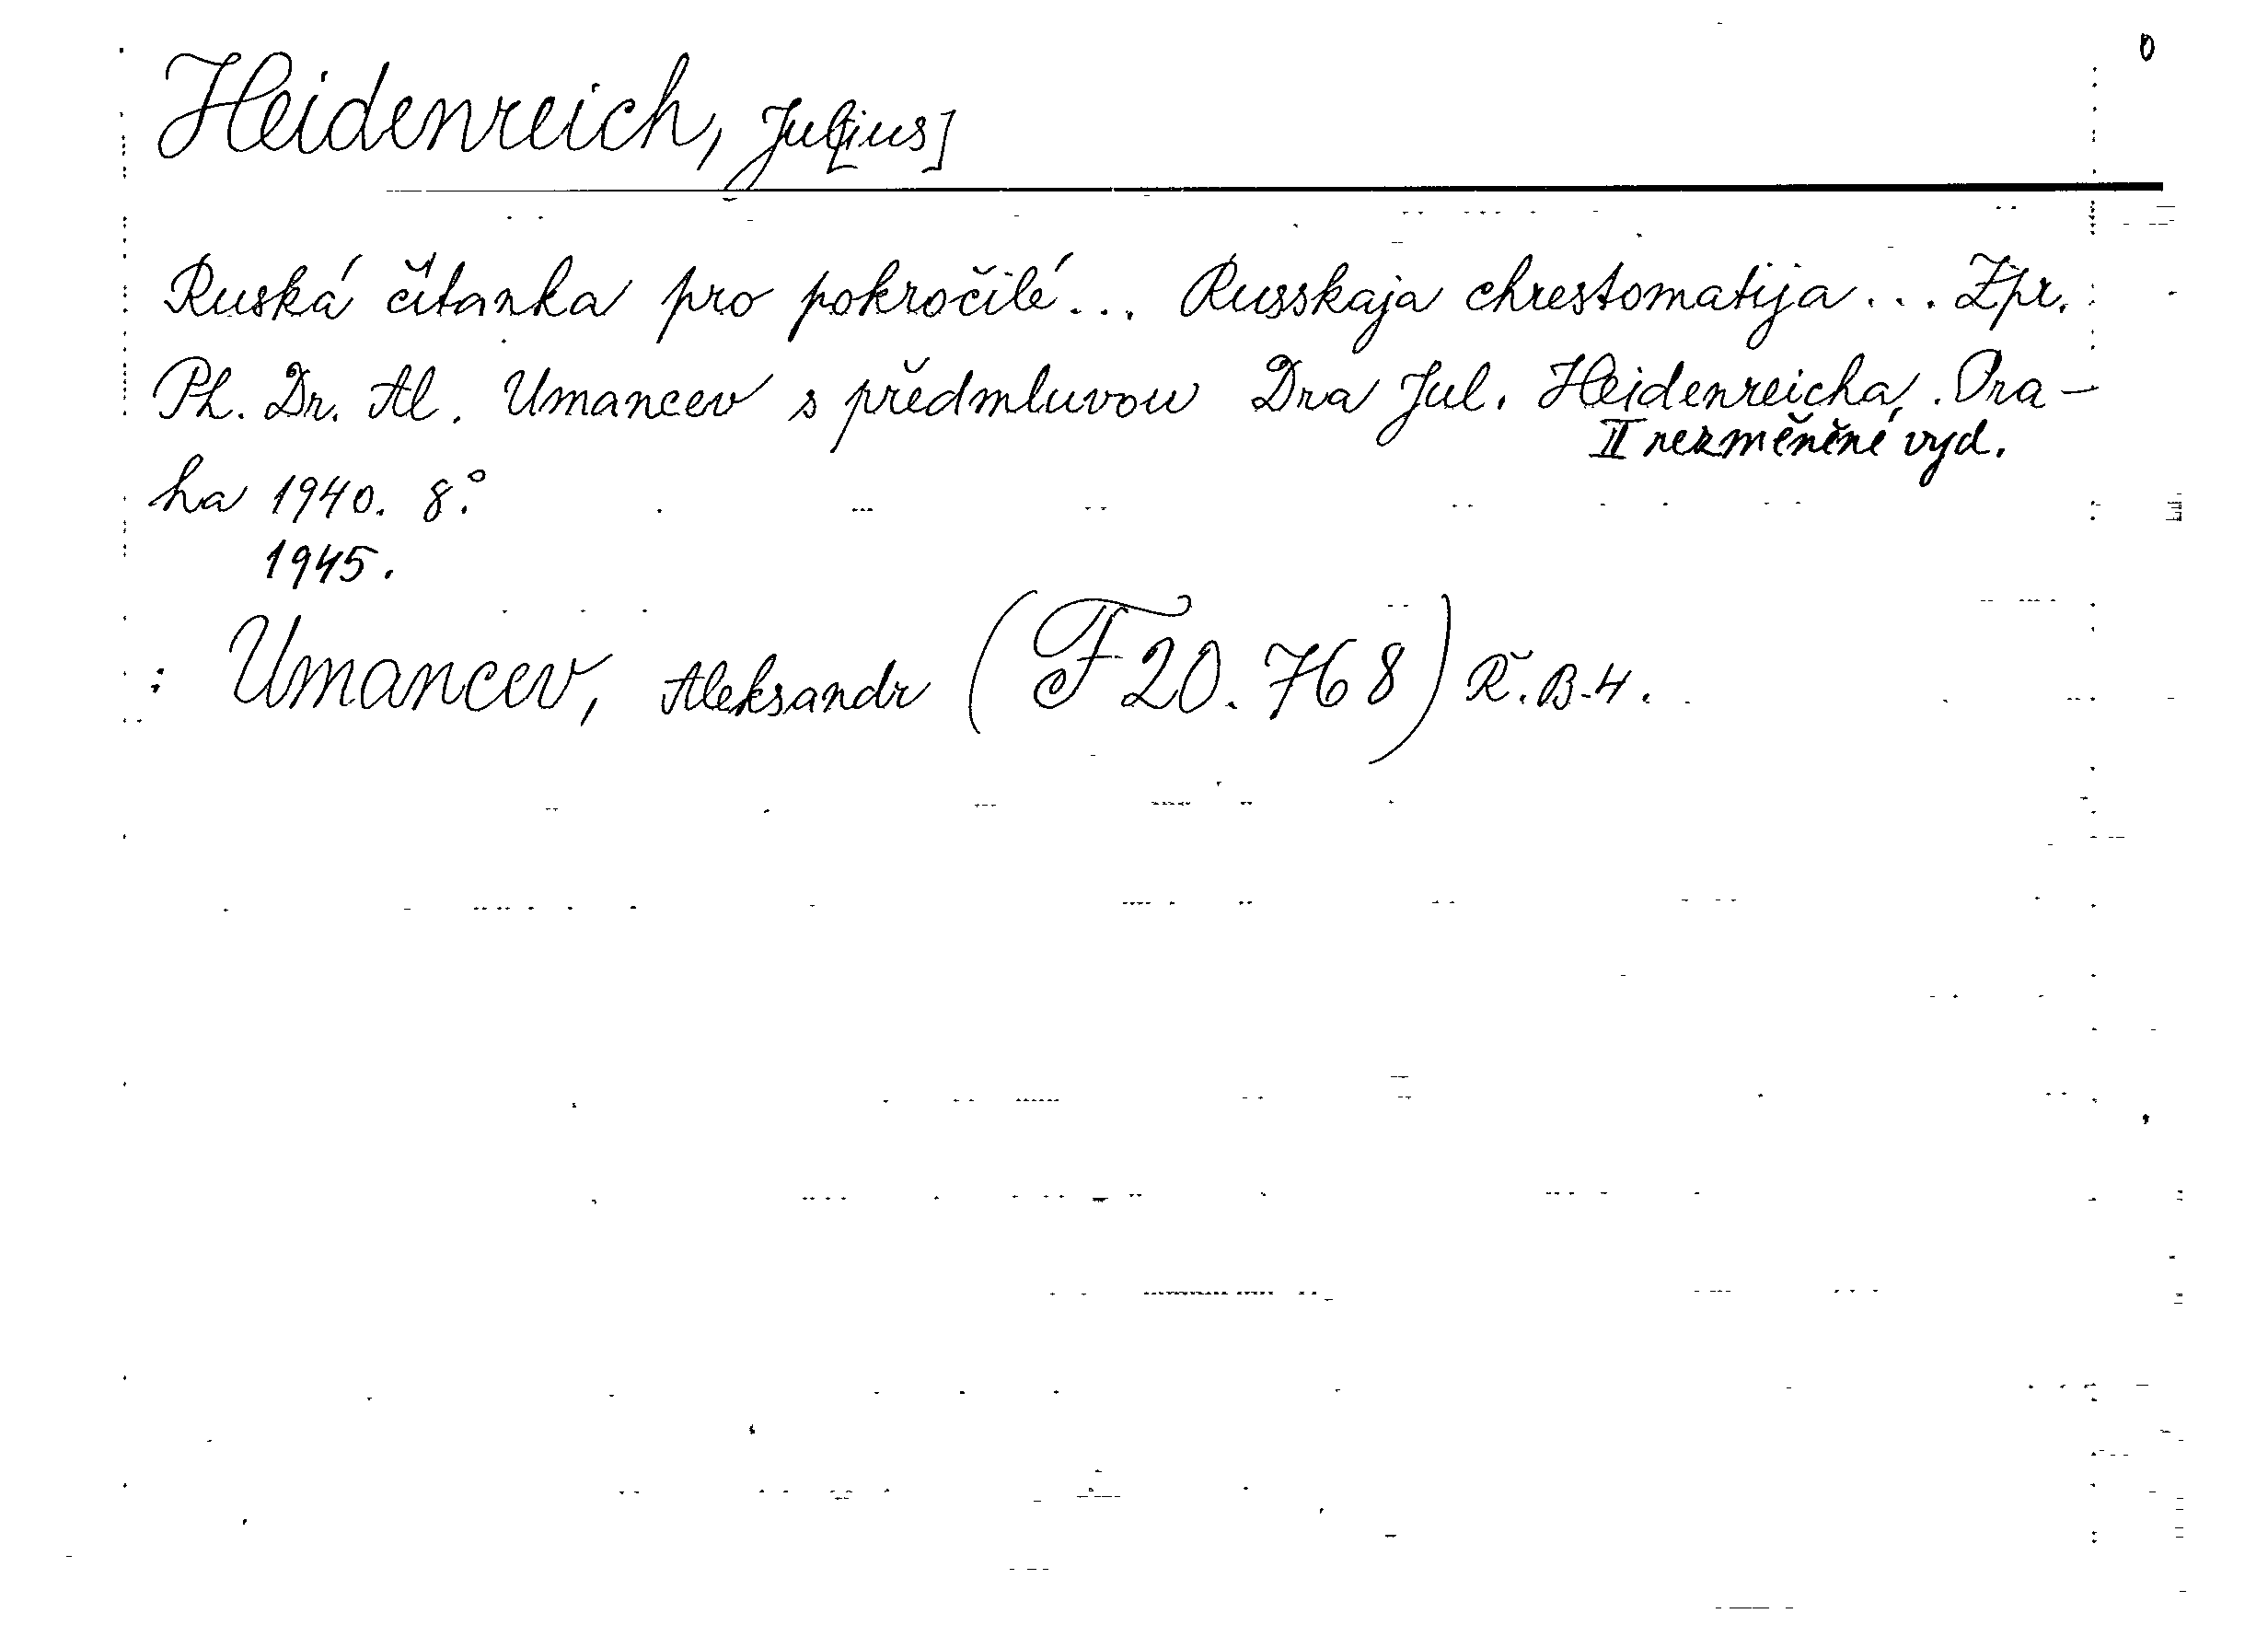 0
Heidenreich, Jul[ius]
Ruská čítanka pro pokročilé... Russkaja chrestomatija... Zpr.
Ph. Dr. Al. Umancev s předmluvou Dra Jul. Heidenreicha. Pra-
II nezměněné vyd.
ha 1940. 8°.
1945.
: Umancev, Aleksandr (F 20.768) Ř.B-4.